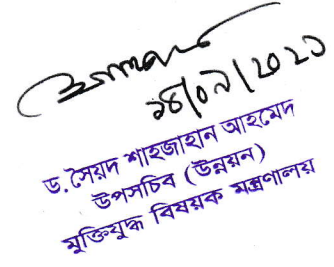 ১৪/০৯/২০২১
ড. সৈয়দ শাহজাহান আহমেদ
উপসচিব (উন্নয়ন)
মুক্তিযুদ্ধ বিষয়ক মন্ত্রণালয়